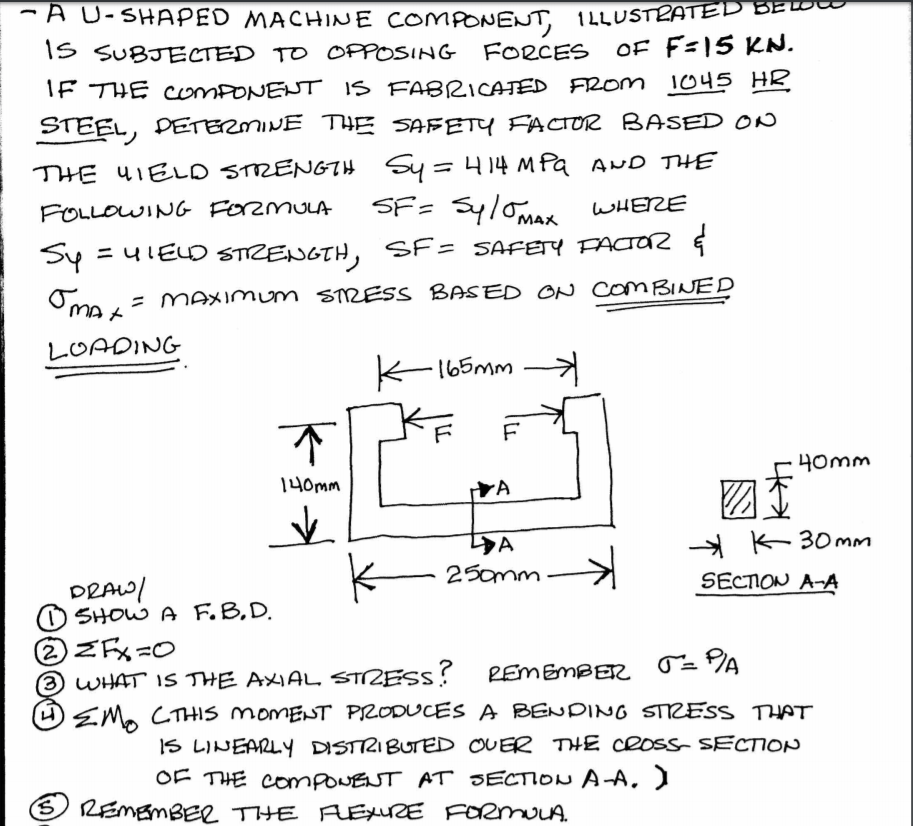 - A U-SHAPED MACHINE COMPONENT, ILLUSTRATED BELOW
IS SUBJECTED TO OPPOSING FORCES OF F=15 KN.
IF THE COMPONENT IS FABRICATED FROM 1045 HR
STEEL, DETERMINE THE SAFETY FACTOR BASED ON
THE YIELD STRENGTH Sy = 414 MPa AND THE
FOLLOWING FORMULA SF= Sy/σMAX WHERE
Sy = YIELD STRENGTH, SF = SAFETY FACTOR &
σMAX = MAXIMUM STRESS BASED ON COMBINED
LOADING.
165mm
F F
140mm
A
A
250mm
40mm
30mm
SECTION A-A
DRAW/
① SHOW A F.B.D.
② ΣFx=0
③ WHAT IS THE AXIAL STRESS? REMEMBER σ= P/A
④ ΣMo (THIS MOMENT PRODUCES A BENDING STRESS THAT
IS LINEARLY DISTRIBUTED OVER THE CROSS-SECTION
OF THE COMPONENT AT SECTION A-A.)
⑤ REMEMBER THE FLEXURE FORMULA.